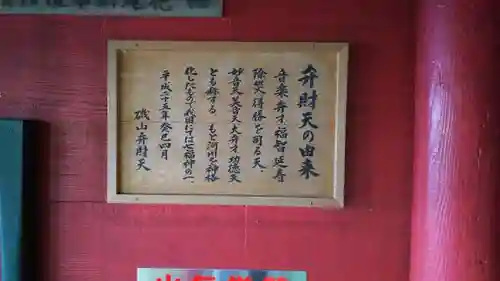 弁財天の由来
音楽弁才福智延寿
除災得勝を司る天、
妙音天美音天大弁才功徳天
とも称する。もと河川を神格
化したもので我国にては七福神の一、
平成二十五年癸巳四月
磯山弁財天